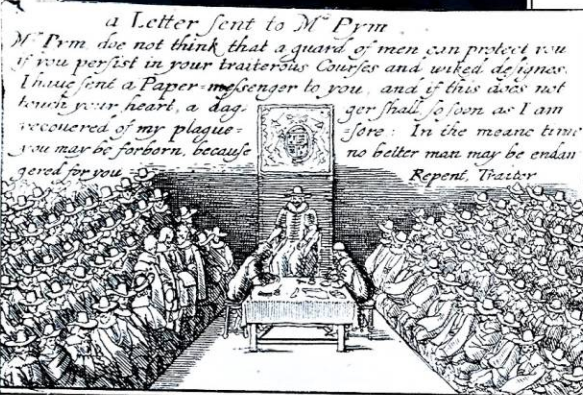 a Letter sent to Mr Pym
Mr Pym, doe not think that a guard of men can protect you
if you persist in your traiterous Courses and wiked designes.
I have sent a Paper=messenger to you, and if this does not
touch your heart, a dag- ger shall so soon as I am
recouered of my plague= =sore: In the meane time
you may be forborn, because no better man may be endan
gered for you Repent, Traitor